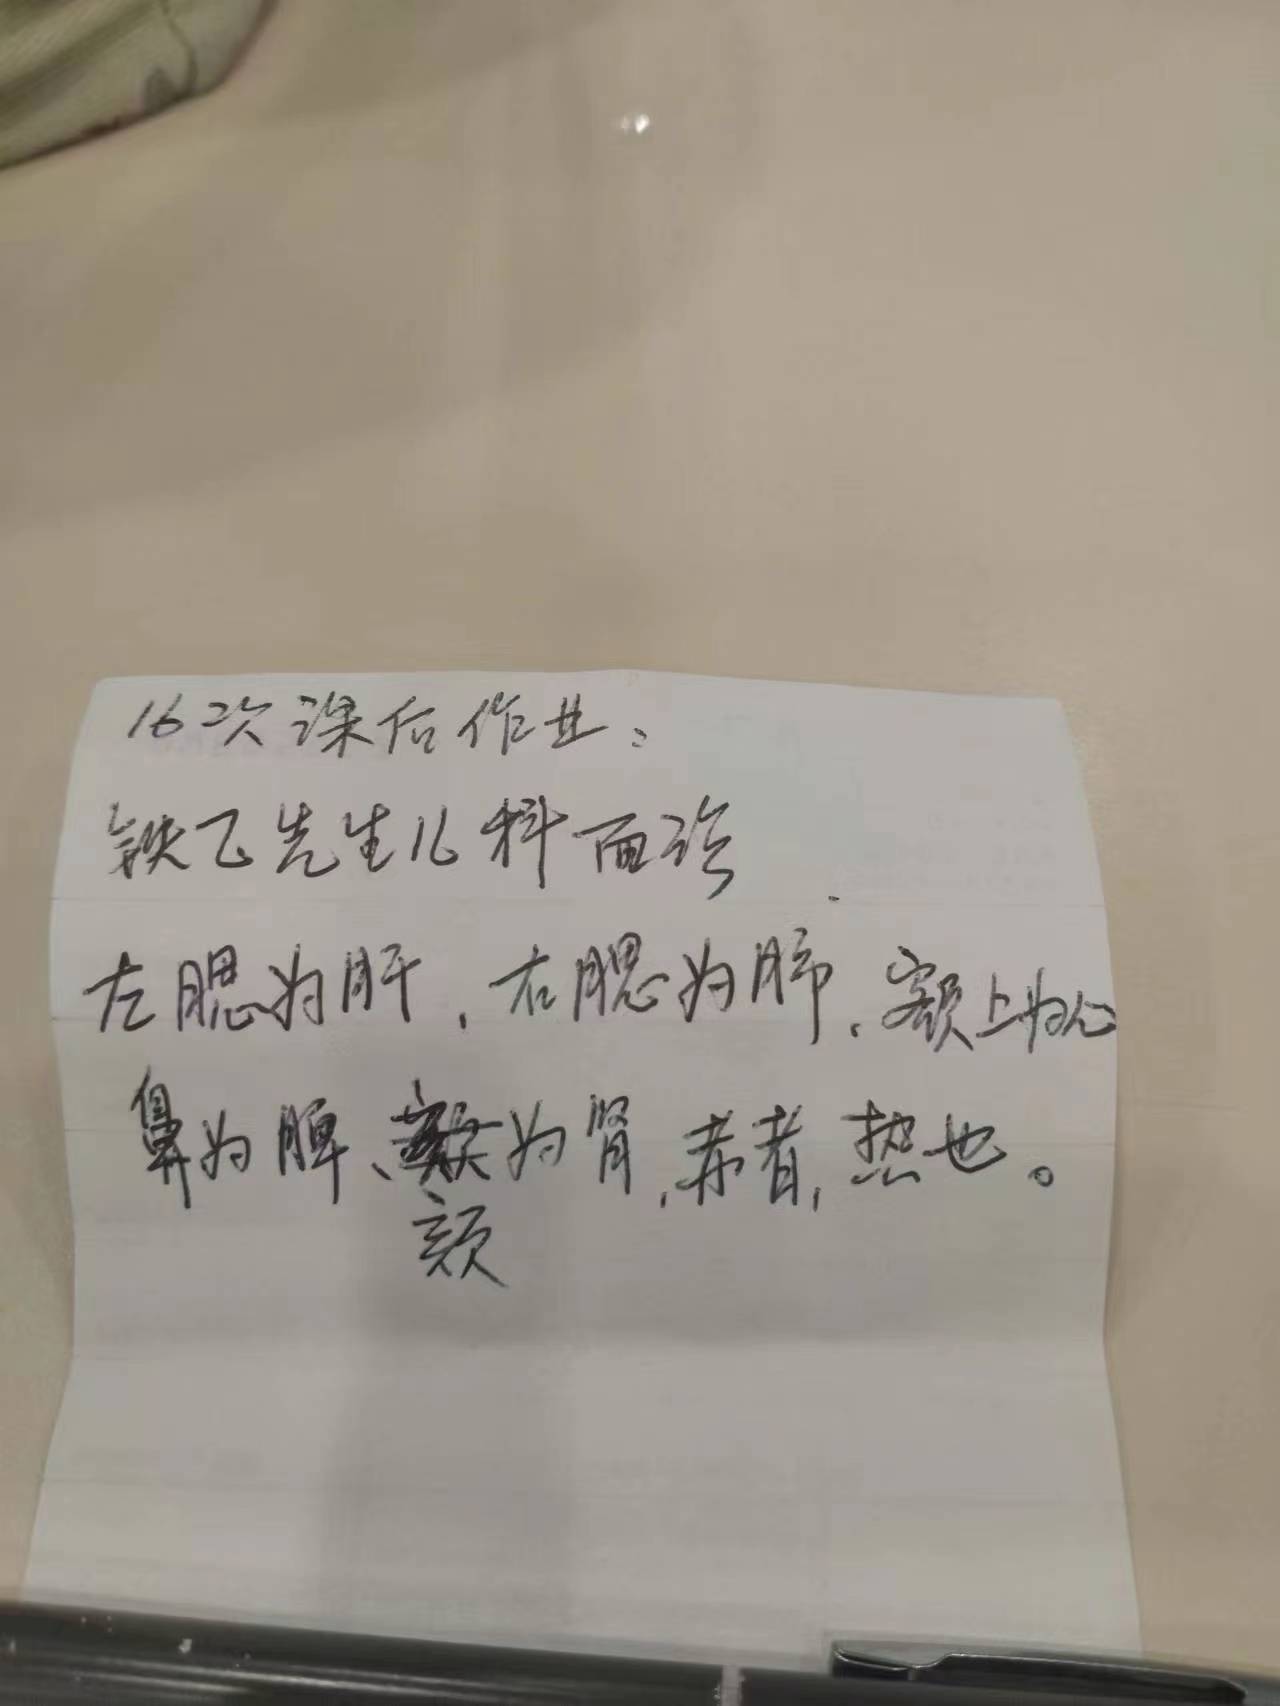 16次课后作业：
铁乙先生儿科面诊
左腮为肝，右腮为肺，额上为心
鼻为脾、为肾，赤者，热也。
颏